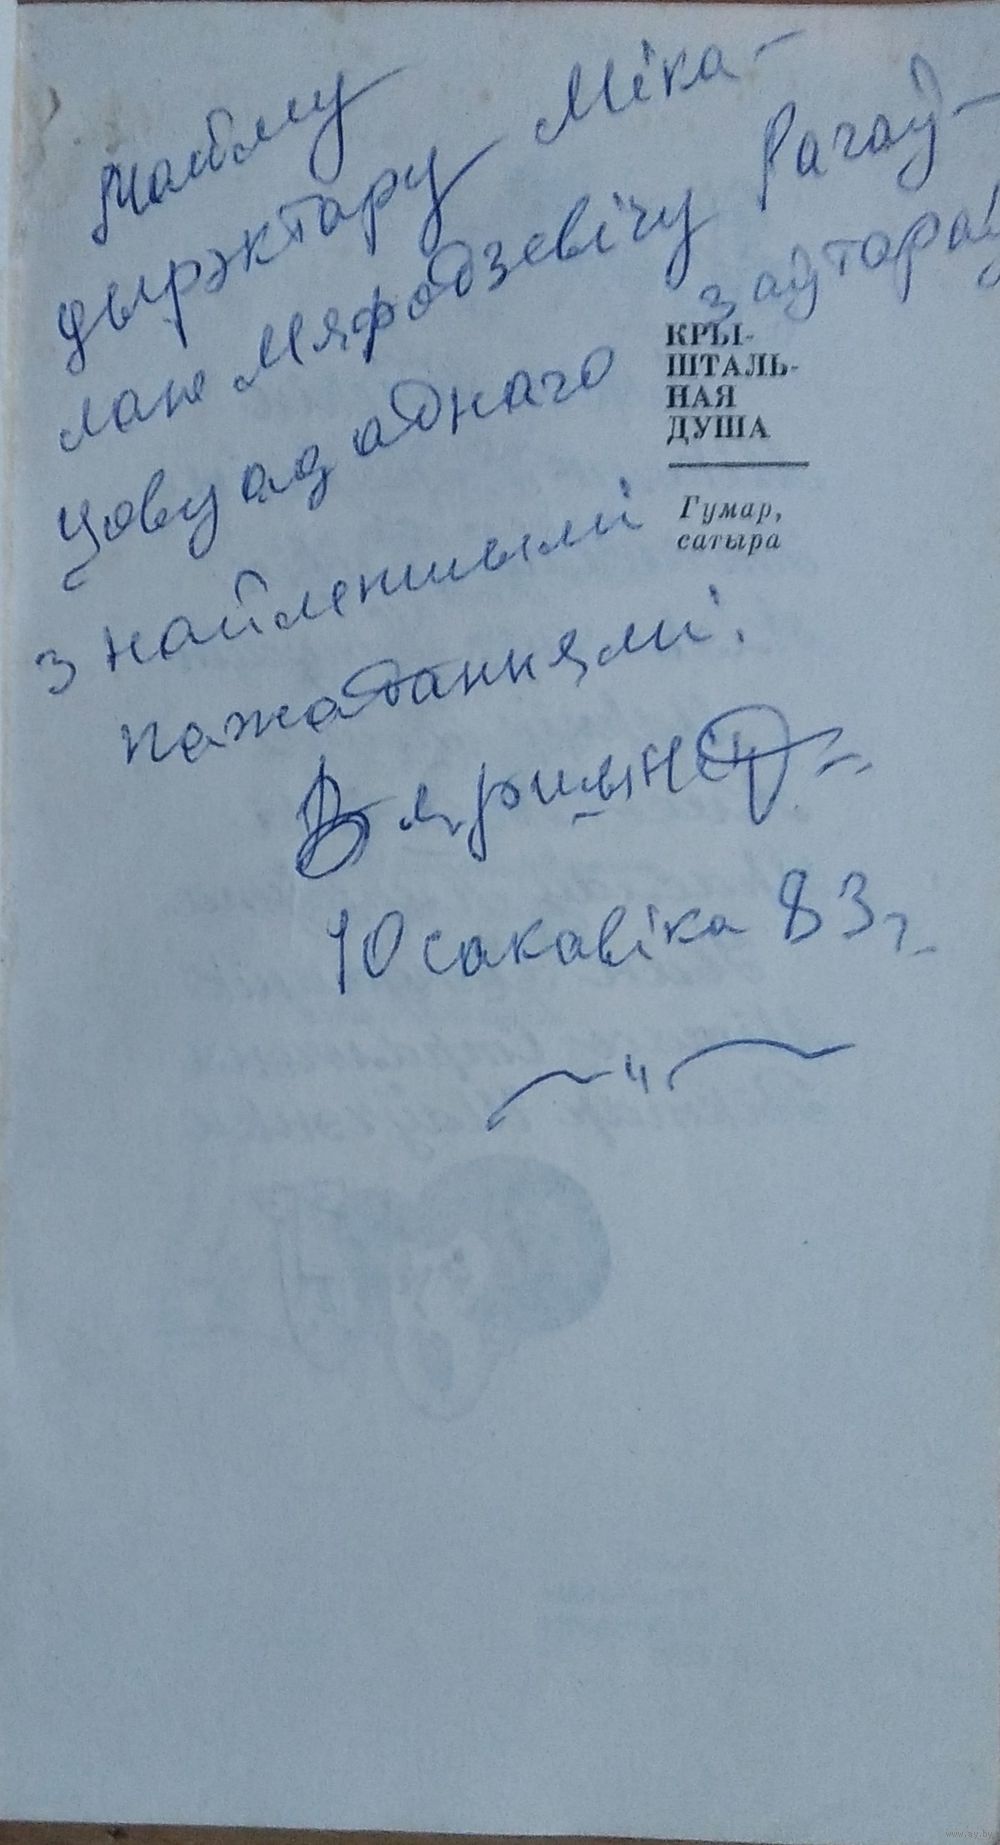 Майму
дырэктару Міка-
лаю Мяфодзевічу Рагаў-
цову ад аднаго з аўтараў
з найлепшымі
пажаданнямі.
Вяршынін
10 сакавіка 83 г.
КРЫ-
ШТАЛЬ-
НАЯ
ДУША
Гумар,
сатыра
www.ay.by